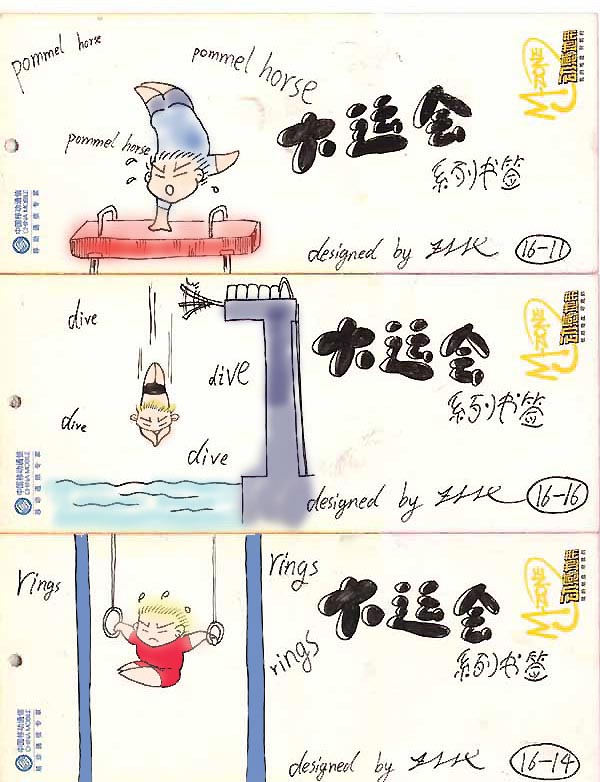 pommel horse
pommel horse
pommel horse
大运会
系列书签
designed by
16-11
M-ZONE
动感地带
我的地盘 听我的
中国移动通信
CHINA MOBILE
移动通信专家
dive
dive
dive
dive
大运会
系列书签
designed by
16-16
M-ZONE
动感地带
我的地盘 听我的
中国移动通信
CHINA MOBILE
移动通信专家
rings
rings
rings
大运会
系列书签
designed by
16-14
M-ZONE
动感地带
我的地盘 听我的
中国移动通信
CHINA MOBILE
移动通信专家